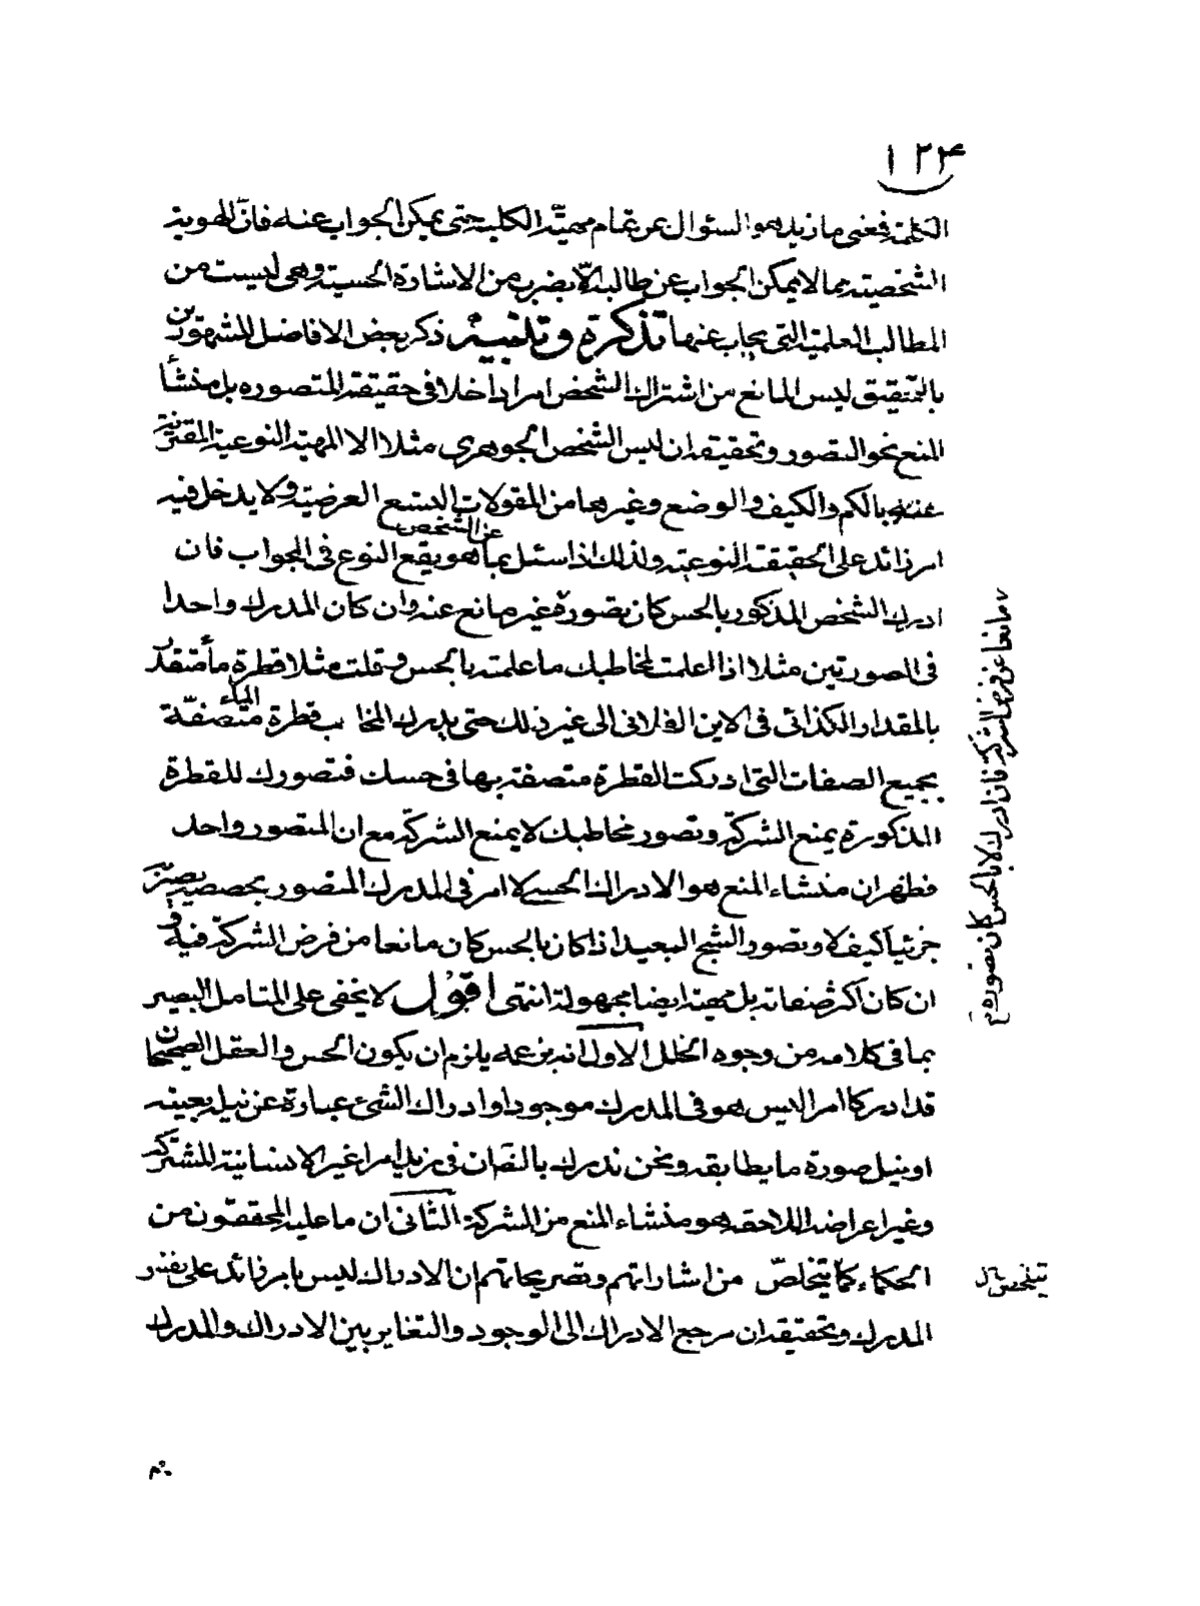 ١٢٣
الكلية فمعنى ما زيد هو السئوال عن تمام مهيته الكلية حتى يمكن الجواب عنه فان الهوية
الشخصية مما لا يمكن الجواب عن طالبها الا بضرب من الاشارة الحسية وهى ليست من
المطالب العلمية التى يجاب عنها تذكرة وتنبيه ذكر بعض الافاضل المشهورين
بالتحقيق ليس المانع من اشتراك الشخص امرا داخلا فى حقيقته المتصوره بل منشأ
المنع نحو التصور وتحقيقه ان ليس الشخص الجوهرى مثلا الا المهية النوعية المقترنة
بالكم والكيف والوضع وغيرها من المقولات التسع العرضية ولا يدخل فيه
امر زائد على الحقيقة النوعية ولذلك اذا سئل عن الشخص بما هو يقع النوع فى الجواب فان
ادرك الشخص المذكور بالحس كان تصوره غير مانع عنه وان كان المدرك واحدا
فى الصورتين مثلا اذا اعلمت لمخاطبك ما علمته بالحس وقلت مثلا قطرة ماء متقدر
بالمقدار الكذائى فى الاين الفلانى الى غير ذلك حتى يدرك المخاطب قطرة الماء متصفة
بجميع الصفات التى ادركت القطرة متصفة بها فى حسك فتصورك للقطرة
المذكورة يمنع الشركة وتصور مخاطبك لا يمنع الشركة مع ان المتصور واحد
فظهر ان منشاء المنع هو الادراك الحسى لا امر فى المدرك المتصور بخصصه يصير
جزئيا كيف لا وتصور الشبح البعيد اذا كان بالحس كان مانعا من فرض الشركة فيه و
ان كان اكثر صفاته بل مهيته ايضا مجهولة انتهى اقول لا يخفى على المتامل البصير
بما فى كلامه من وجوه الخلل الاول انه بزعمه يلزم ان يكون الحس والعقل الصحيحان
قد ادركا امرا ليس هو فى المدرك موجودا وادراك الشئ عبارة عن نيله بعينه
او بنيل صورة ما يطابقه ونحن ندرك بالذات فى زيد امرا غير الانسانية المشتركة
وغير اعراضه اللاحقه هو منشاء المنع من الشركة الثانى ان ما عليه المحققون من
الحكماء كما يتخلص من اشاراتهم وتصريحاتهم ان الادراك ليس بامر زائد على نفس
المدرك وتحقيقه ان مرجع الادراك الى الوجود والتغاير بين الادراك والمدرك
مانعا عن فرض الشركة فان ادرك لا بالحس كان تصوره